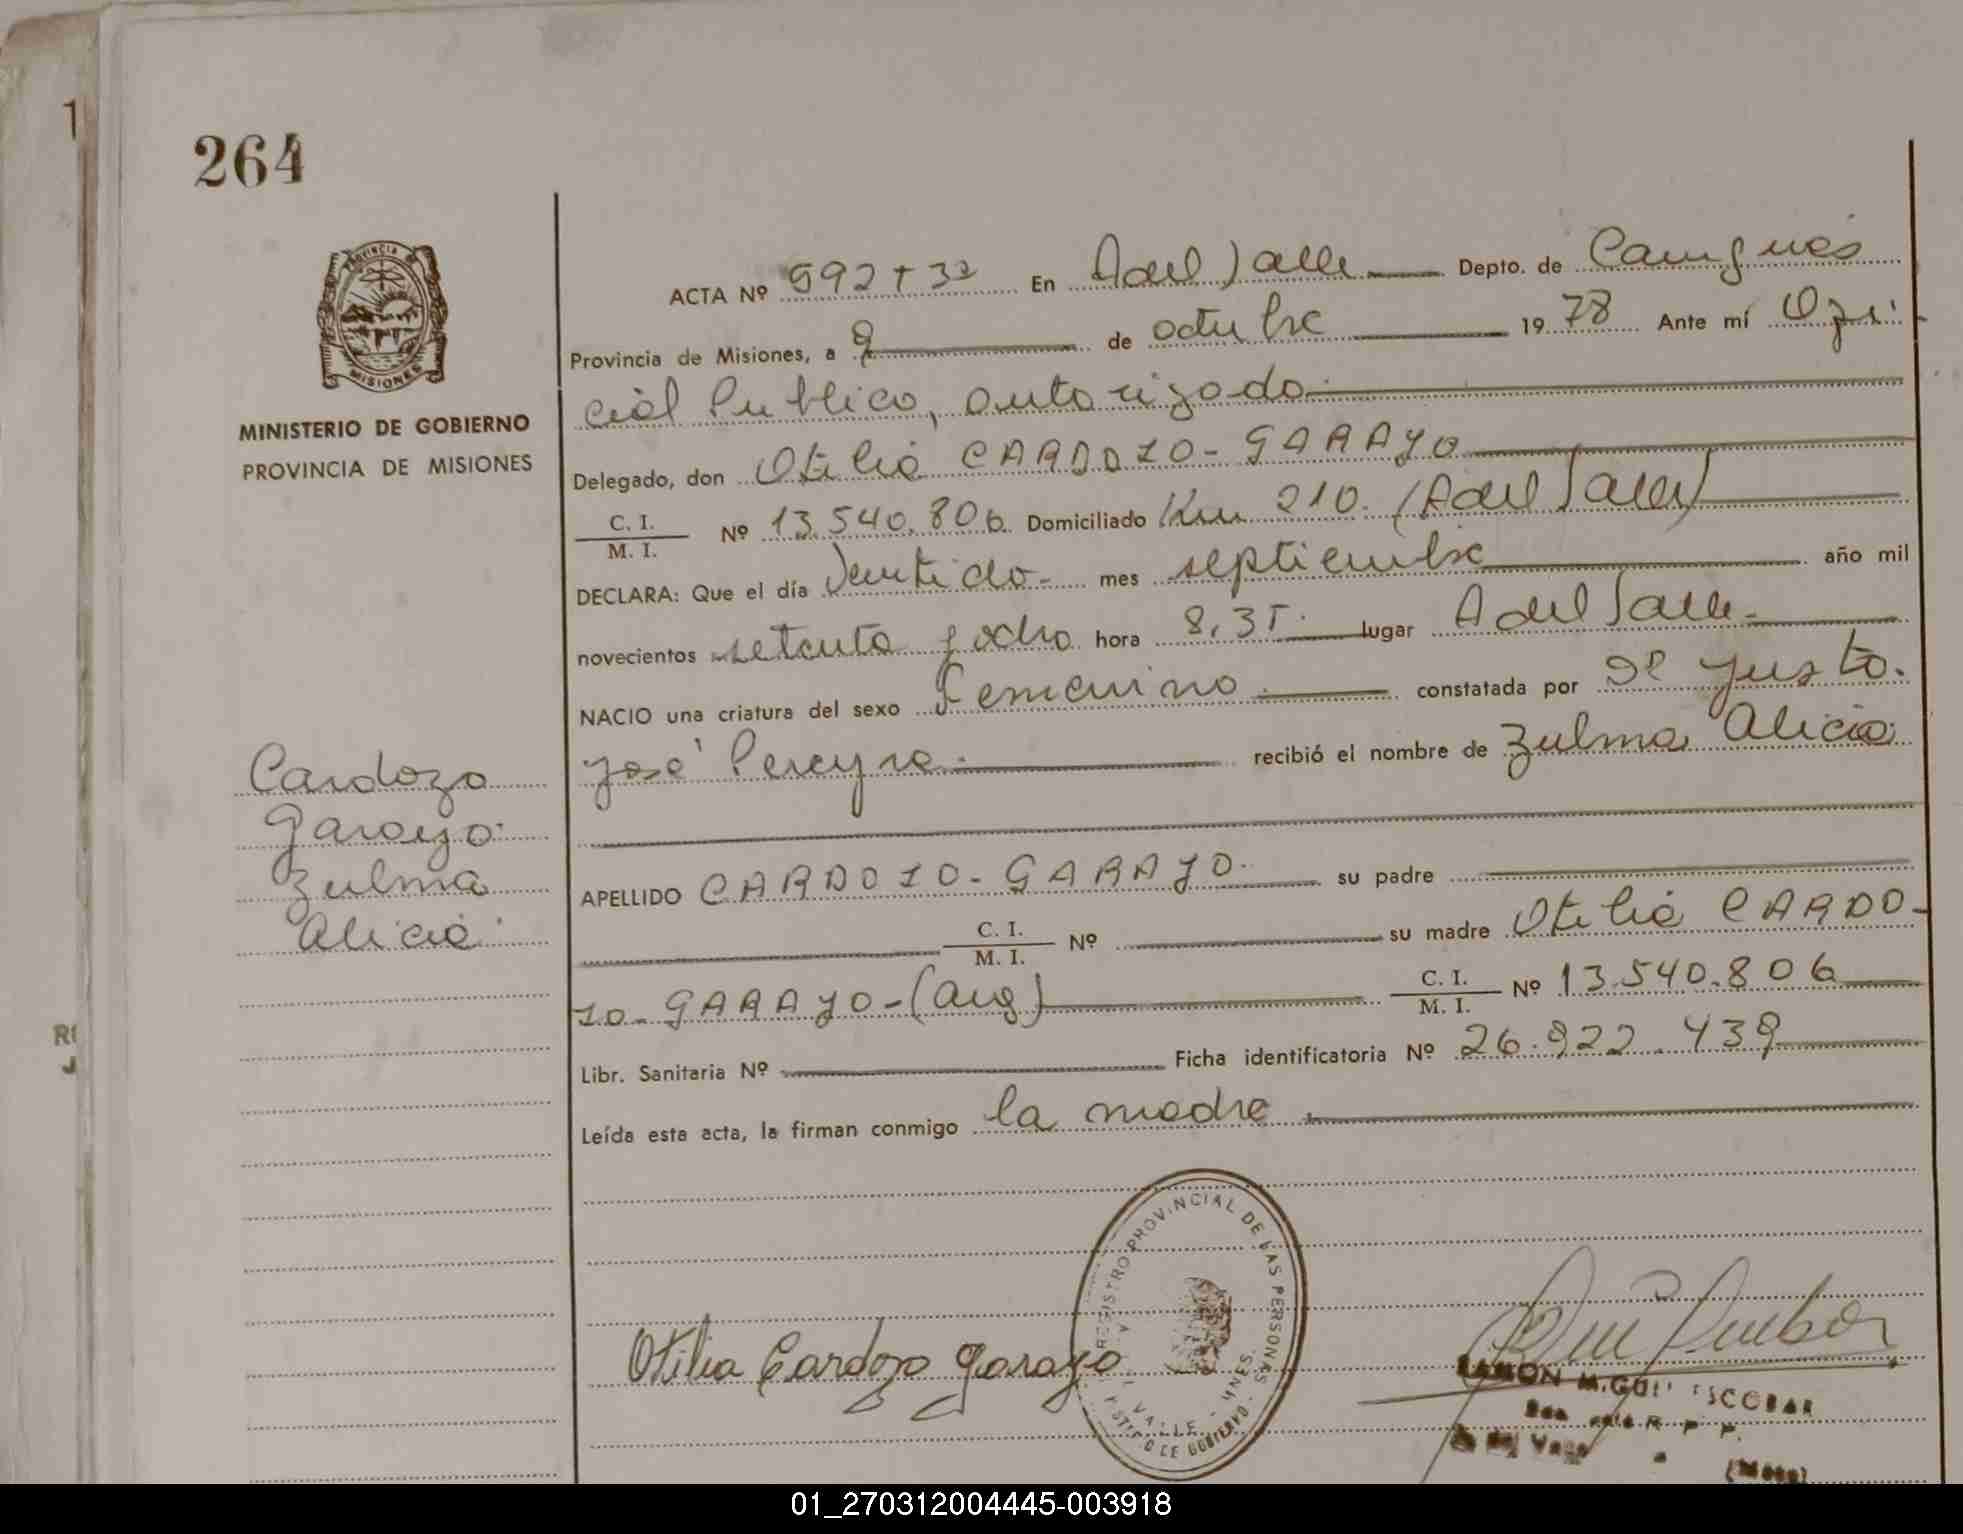 264
PROVINCIA DE
MISIONES
MINISTERIO DE GOBIERNO
PROVINCIA DE MISIONES
Cardozo
Garayo
Zulma
Alicia
ACTA Nº 992 T 3º En A del Valle Depto. de
Provincia de Misiones, a 9 de octubre 1978 Ante mí Ofi-
cial Publico, autorizado
Delegado, don Otilia CARDOZO-GARAYO
C. I. / M. I. Nº 13.540.806 Domiciliado Km 210. (A del Valle)
DECLARA: Que el día Ventido mes septiembre año mil
novecientos setenta y ocho hora 8,35 lugar A del Valle
NACIO una criatura del sexo Femenino constatada por Justo
José Pereyra recibió el nombre de Zulma Alicia
APELLIDO CARDOZO-GARAYO su padre
C. I. / M. I. Nº su madre Otilia CARDO-
ZO-GARAYO-(Arg) C. I. / M. I. Nº 13.540.806
Libr. Sanitaria Nº Ficha identificatoria Nº 26.922.439
Leída esta acta, la firman conmigo la madre
REGISTRO PROVINCIAL DE LAS PERSONAS
VALLE - MNES.
DE GOBIERNO
Otilia Cardozo Garayo
RAMON ESCOBAR
R P P.
01_270312004445-003918